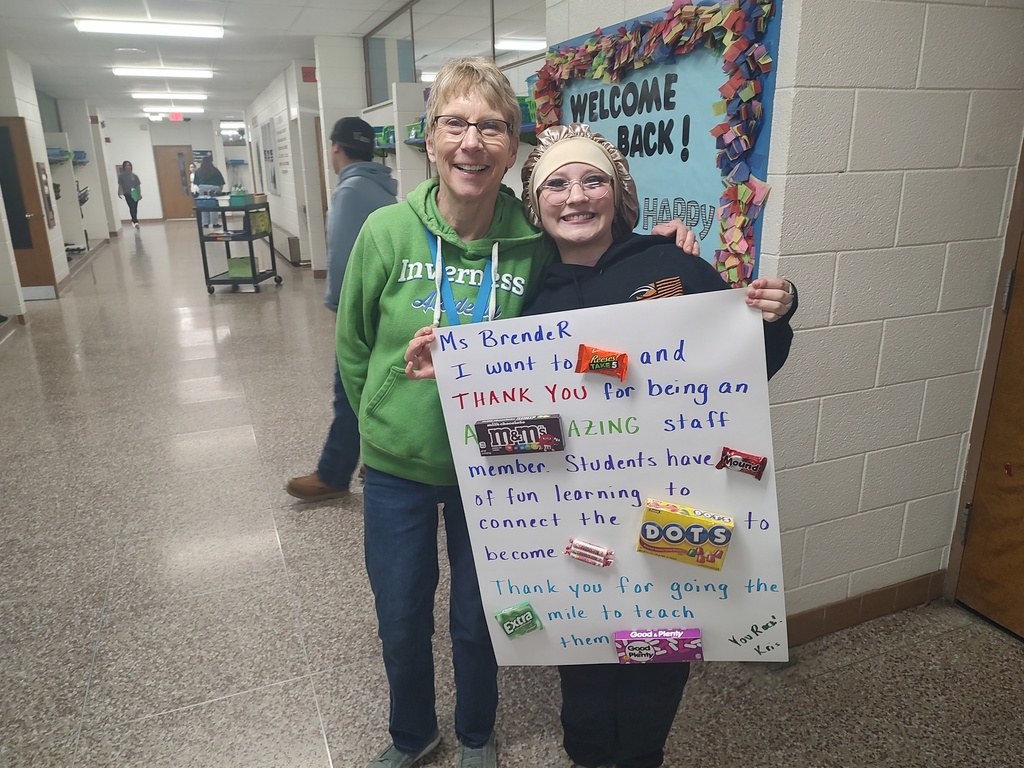 WELCOME
BACK!
HAPPY
Inverness
Academy
Ms BrendeR
I want to Reese's TAKE 5 and
THANK YOU for being an
A milk chocolate m&m's AZING staff
member. Students have Mounds
of fun learning to
connect the DOTS DOTS to
become
Thank you for going the
Extra mile to teach
them Good & Plenty Good & Plenty
You Rock!
Kris